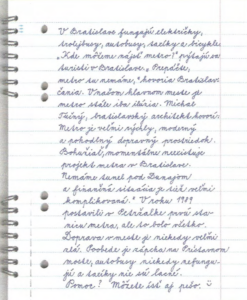 V Bratislave fungujú električky,
trolejbusy, autobusy, taxíky a bicykle.
„Kde môžeme nájsť metro?“ pýtajú sa
turisti v Bratislave. „Prepáčte,
metro tu nemáme,“ hovoria Bratislav-
čania. V našom hlavnom meste je
metro stále iba ilúzia. Michal
Tučný, bratislavský architekt hovorí:
Metro je veľmi rýchly, moderný
a pohodlný dopravný prostriedok.
Bohužiaľ, momentálne neexistuje
projekt metra v Bratislave.
Nemáme tunel pod Dunajom
a finančná situácia je tiež veľmi
komplikovaná.“ V roku 1989
postavili v Petržalke prvú sta-
nicu metra, ale to bolo všetko.
Doprava v meste je niekedy veľmi
zlá. Všade je zápcha na Prístavnom
moste, autobusy niekedy nefungu-
jú a taxíky nie sú lacné.
Pomoc? Môžete ísť aj pešo. ☺